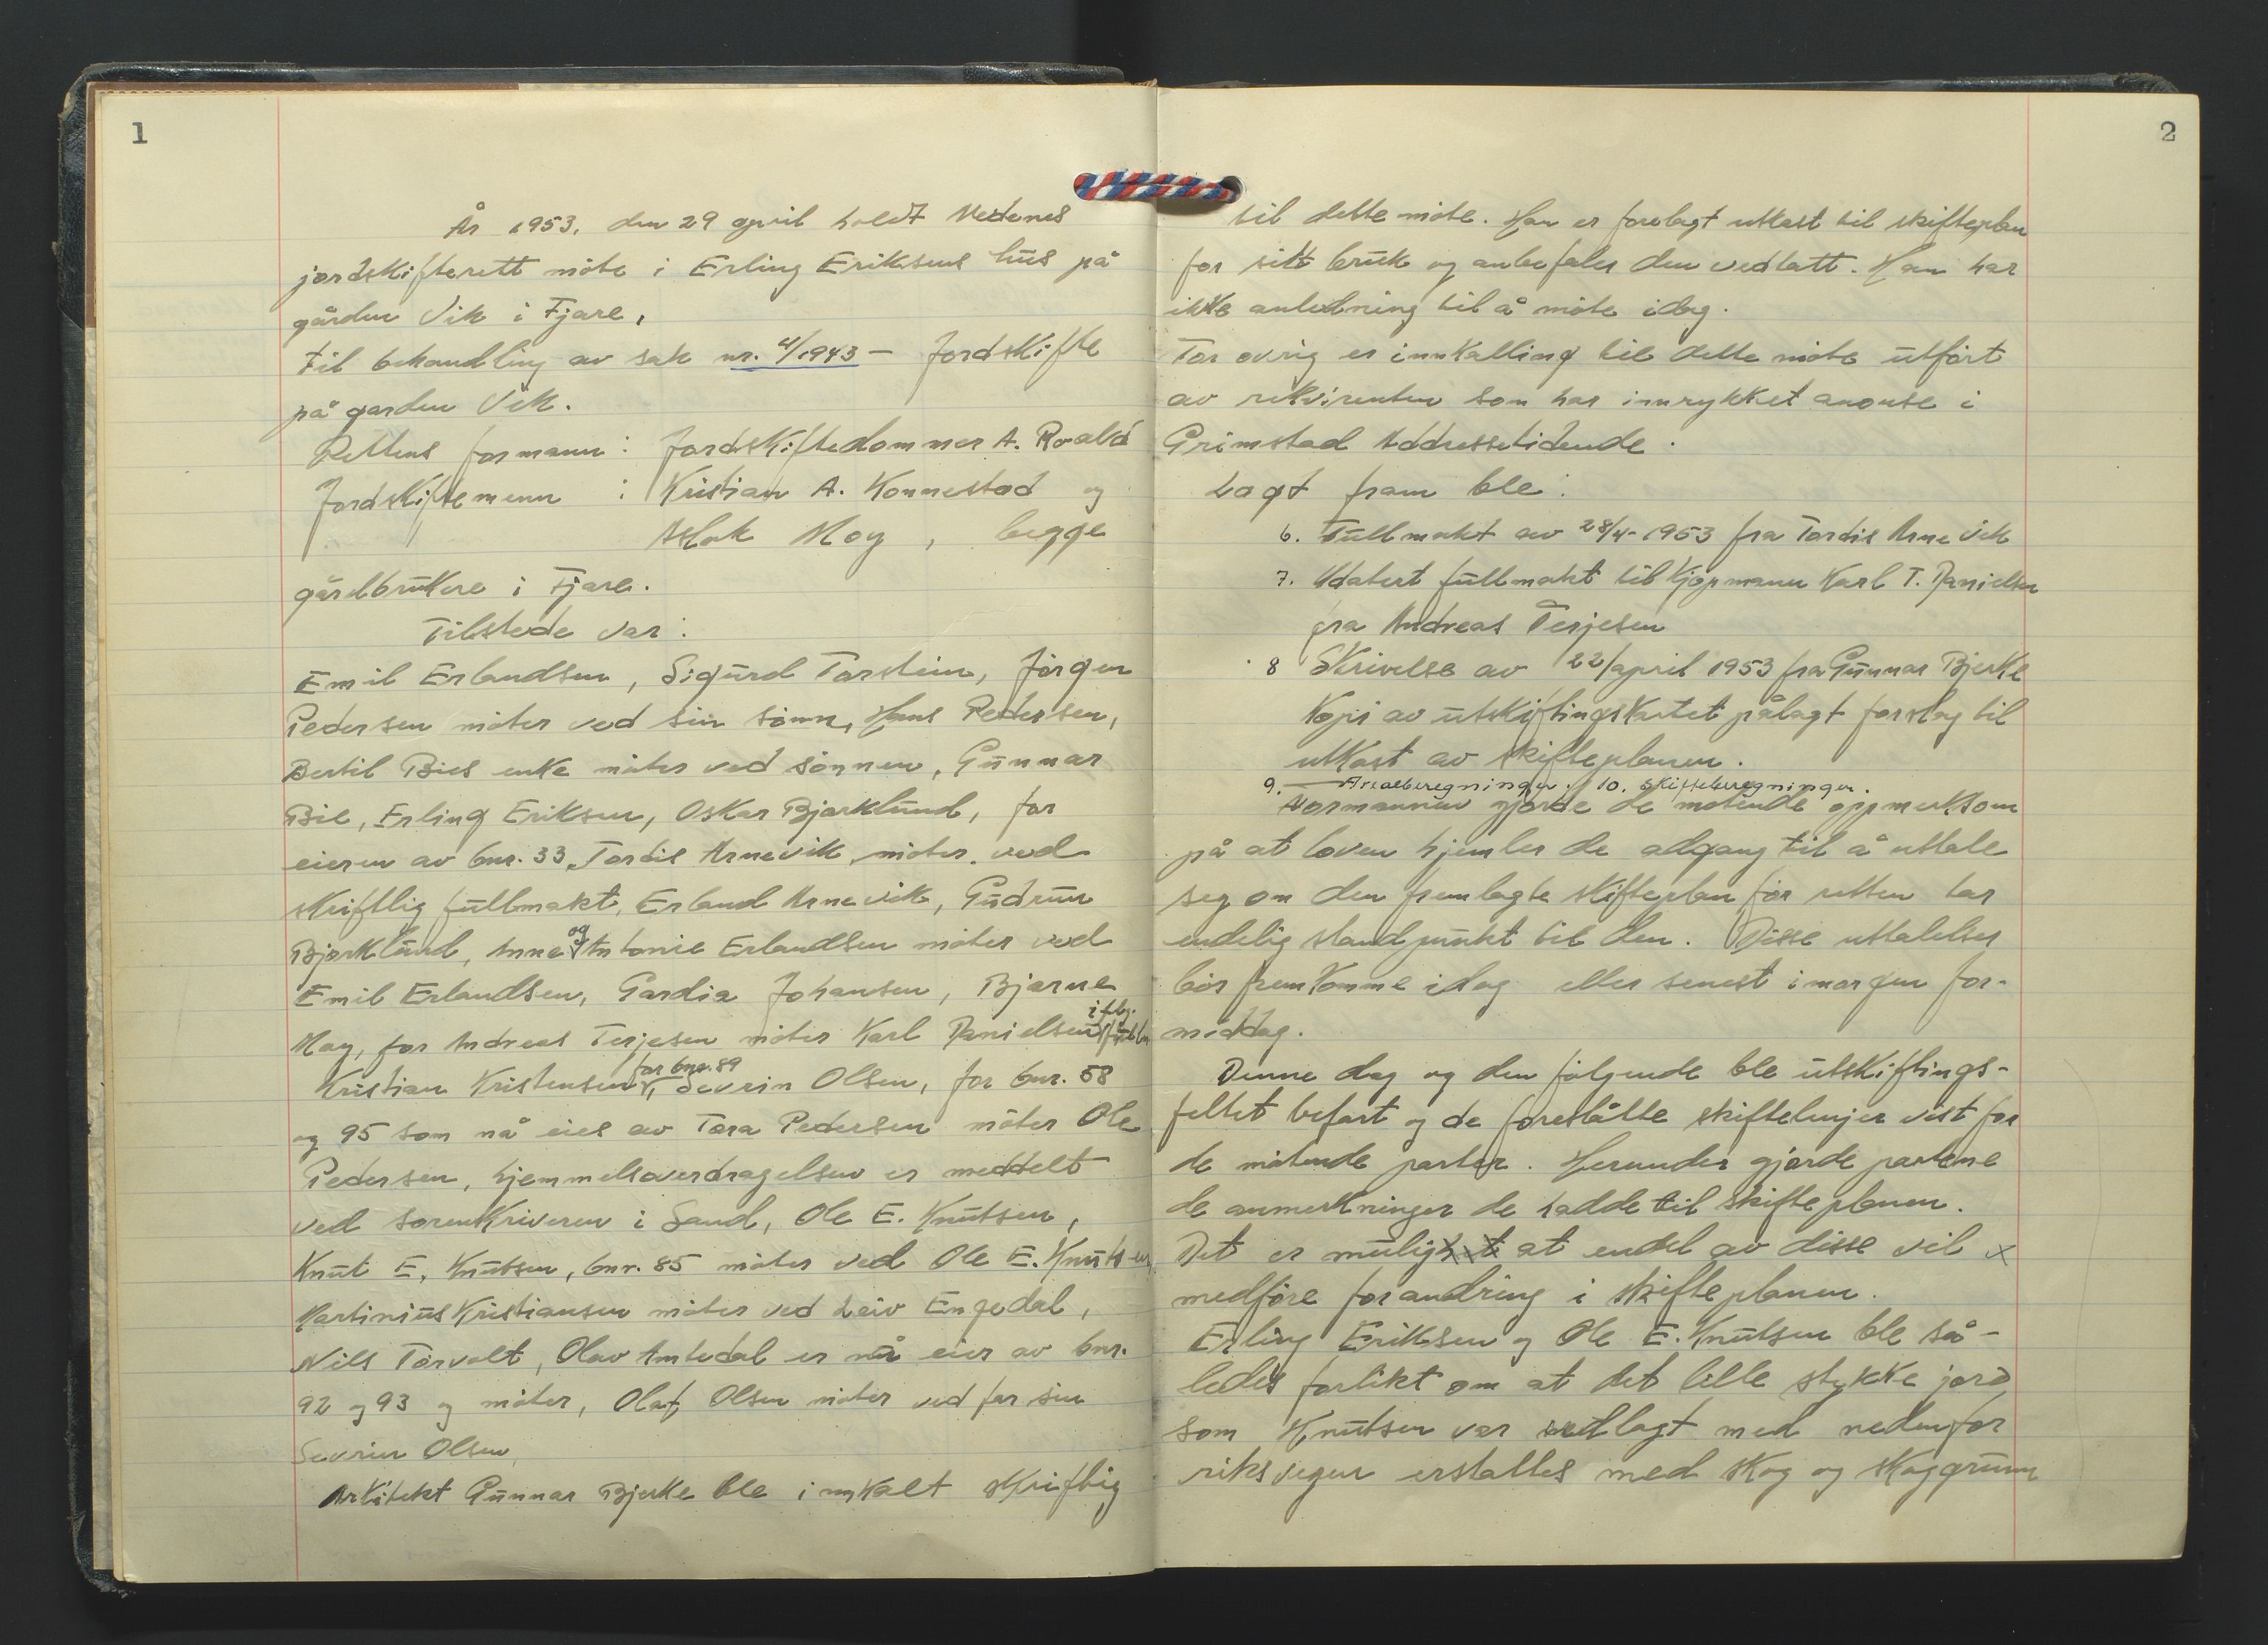 1
År 1953, den 29 april holdt Nedenes
jordskifterett möte i Erling Eriksens hus på
gården Vik i Fjære,
til behandling av sak nr. 4/1943 – Jordskifte
på garden Vik.
Rettens formann : Jordskiftedommer A. Roald
Jordskiftemenn : Kristian A. Konnestad og
Aslak Moy, begge
gårdbrukere i Fjære.
Tilstede var:
Emil Erlandsen, Sigurd Torstein, Jörgen
Pedersen möter ved sin sönn, Hans Pedersen,
Bertil Bies enke möter ved sönnen, Gunnar
Bie, Erling Eriksen, Oskar Bjorklund, for
eieren av bnr. 33 Tordis Arnevik möter ved
skriftlig fullmakt, Erland Arnevik, Gudrun
Bjorklund, Anne og Antonie Erlandsen möter ved
Emil Erlandsen, Gardia Johansen, Bjarne
Moy, for Andreas Terjesen möter Karl Danielsen ifölg. fullm
Kristian Kristensen for bnr. 89, Sevrin Olsen, for bnr. 58
og 95 som nå eies av Tora Pedersen möter Ole
Pedersen, hjemmelsoverdragelsen er meddelt
ved sorenskriveren i Sand, Ole E. Knutsen,
Knut E. Knutsen, bnr. 85 möter ved Ole E. Knutsen
Martinius Kristiansen möter ved Leiv Engedal,
Nils Torvolt, Olav Amtedal er nå eier av bnr.
92 og 93 og möter, Olaf Olsen möter ved far sin
Sevrin Olsen,
Arkitekt Gunnar Bjerke ble innkalt skriftlig
2
til dette möte. Han er forelagt utkast til skifteplan
for sitt bruk og anbefaler den vedtatt. Han har
ikke anledning til å möte idag.
For övrig er innkalling til dette möte utfört
av rekvirenten som har innrykket anonse i
Grimstad Addressetidende.
Lagt fram ble:
6. Fullmakt av 28/4-1953 fra Tordis Arnevik
7. Udatert fullmakt til kjöpmann Karl T. Danielsen
fra Andreas Terjesen
8 Skrivelse av 22/april 1953 fra Gunnar Bjerke
Kopi av utskiftingskartet pålagt forslag til
utkast av skifteplanen.
9. Arealberegninger. 10. Skifteberegninger.
Formannen gjorde de mötende oppmerksom
på at loven hjemler de adgang til å uttale
seg om den fremlagte skifteplan för retten tar
endelig standpunkt til den. Disse uttalelser
bör fremkomme idag eller senest imorgen for-
middag.
Denne dag og den fölgende ble utskiftings-
feltet befart og de foreslåtte skiftelinjer vist for
de mötende parter. Herunder gjorde partene
de anmerkninger de hadde til skifteplanen.
Det er mulig at endel av disse vil x
medföre forandring i skifteplanen.
Erling Eriksen og Ole E. Knutsen ble så-
ledes forlikt om at det lille stykke jord
som Knutsen var utlagt med nedenfor
riksvegen erstattes med skog og skoggrunn